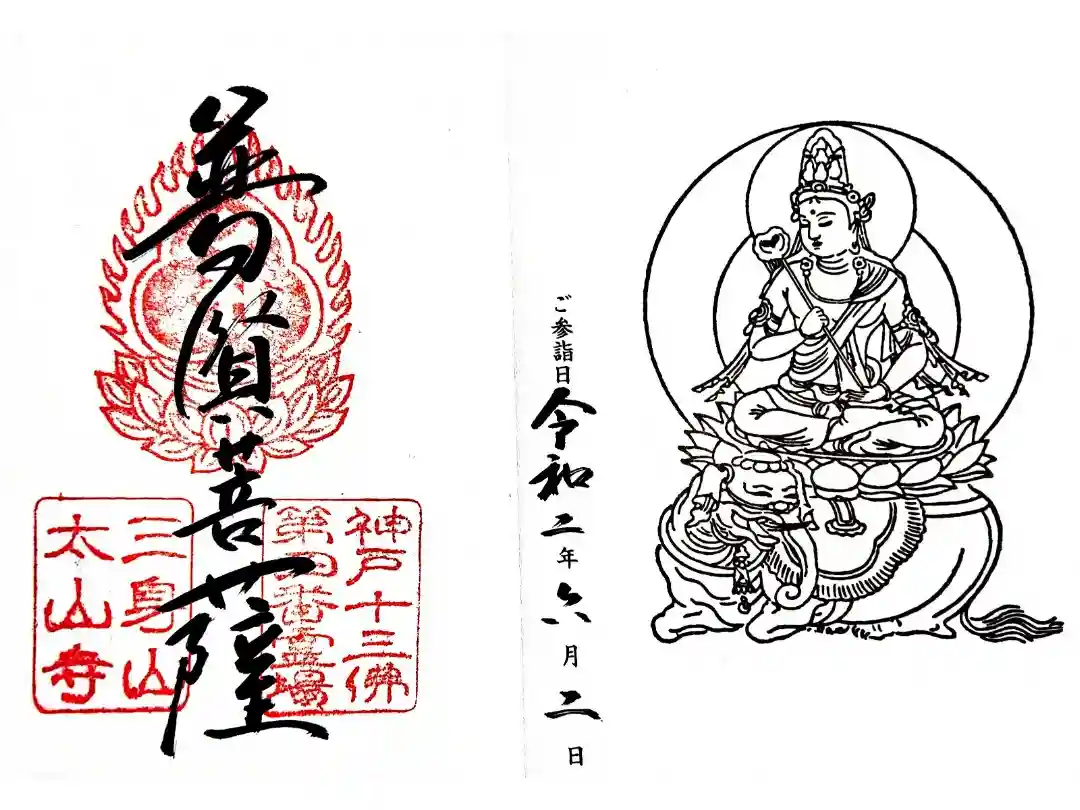 ご参詣日 令和二年六月二日
神戸十三佛
第四番霊場
普賢菩薩
三身山
太山寺